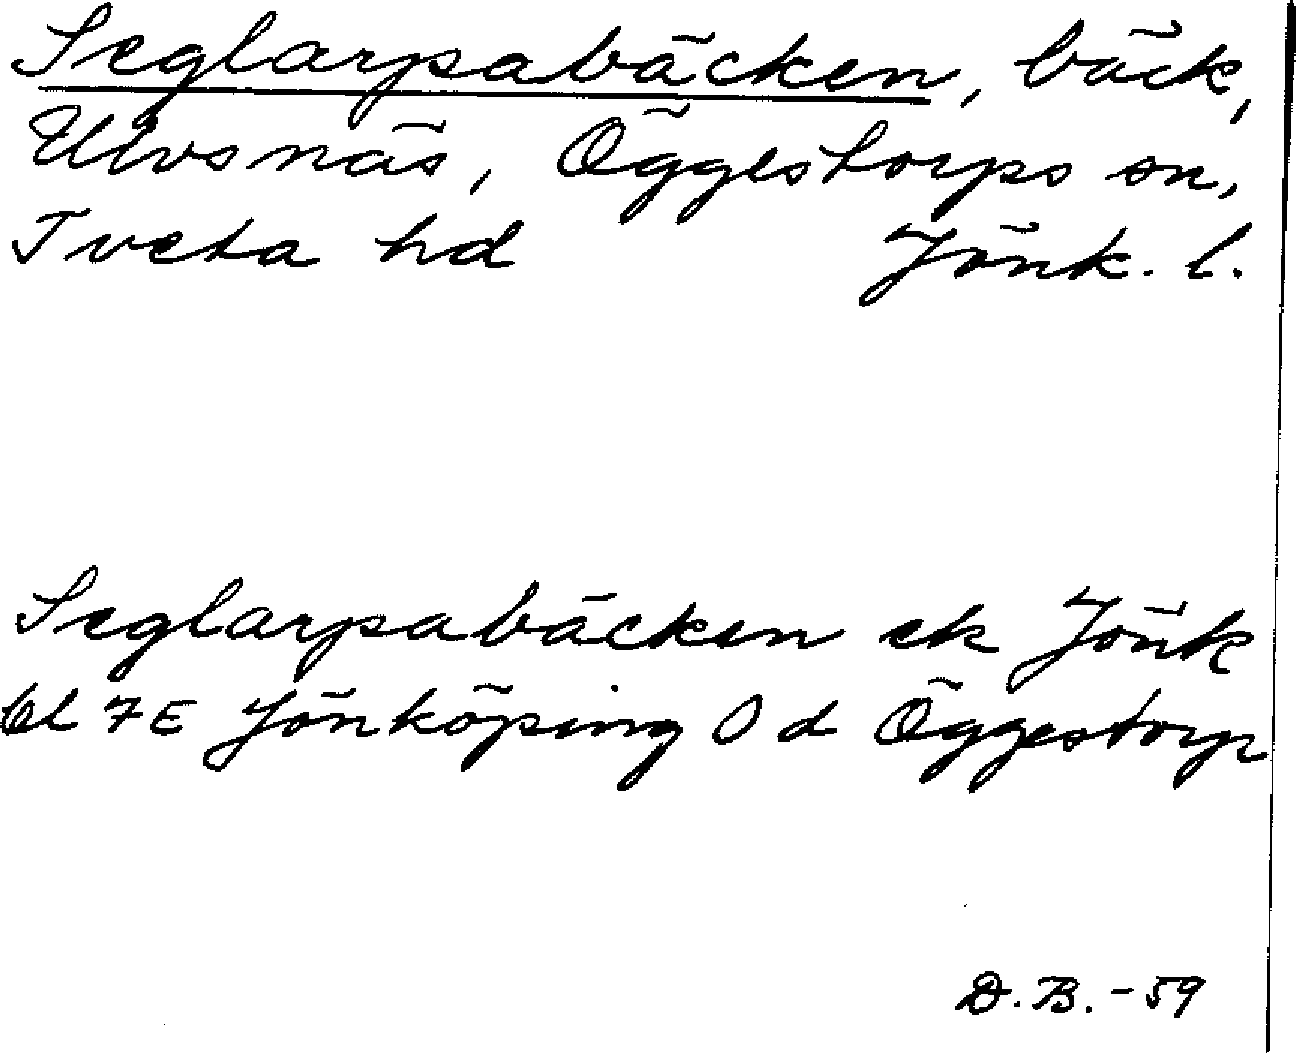 Seglarpabäcken, bäck,
Ulvsnäs, Öggestorps sn,
Tveta hd Jönk. l.
Seglarpabäcken ek Jönk
bl 7E Jönköping 0 d Öggestorp
D.B.-59